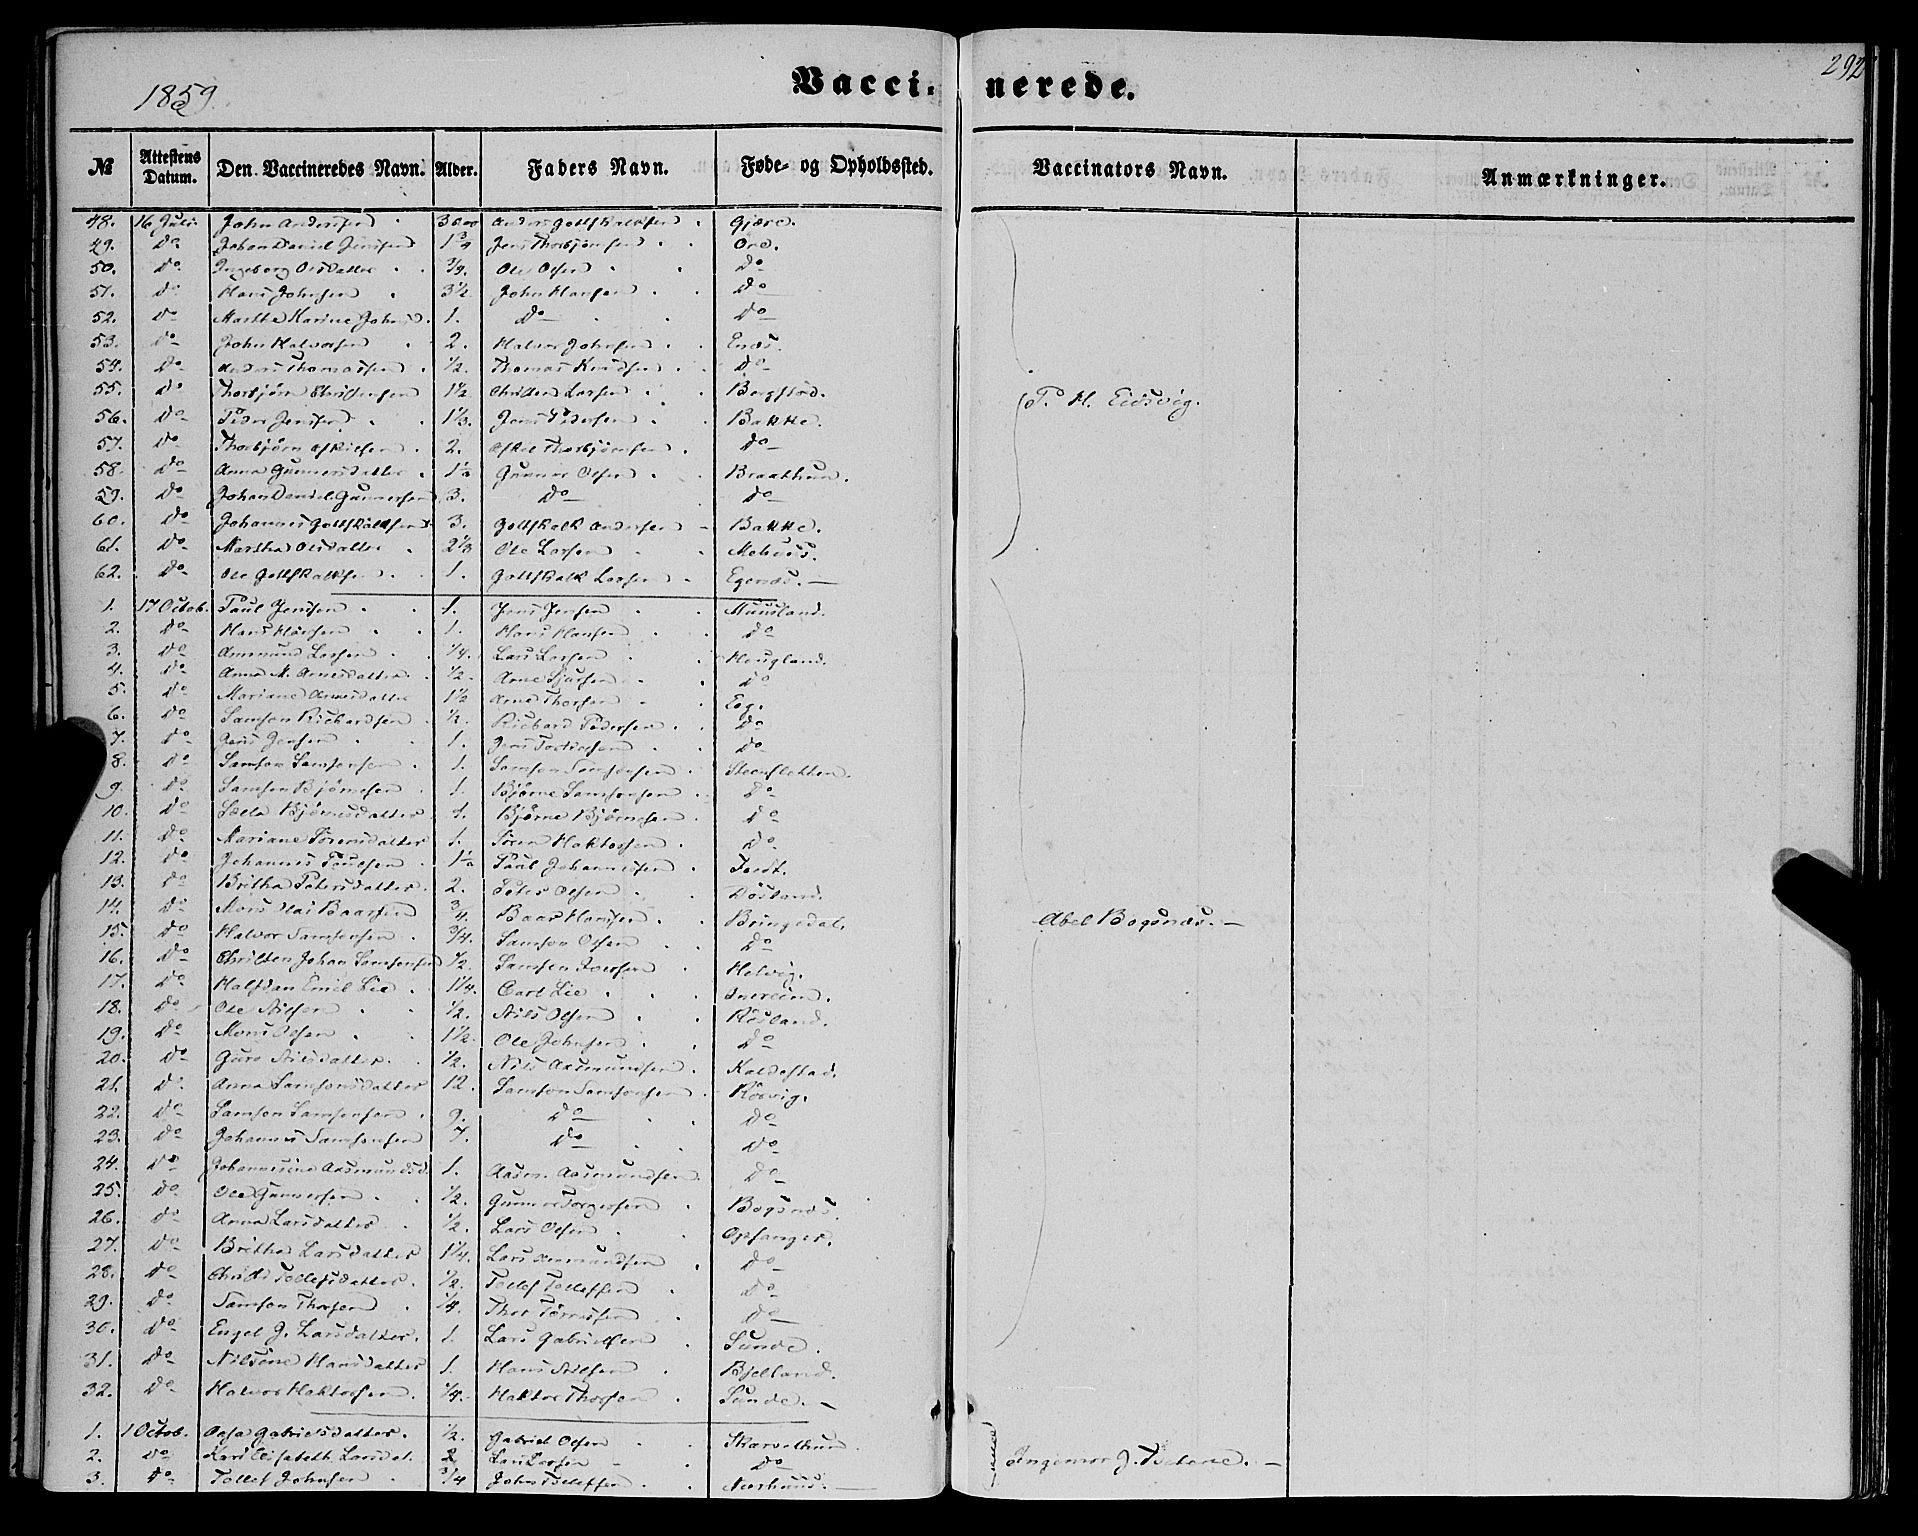 292
1859.
Vaccinerede.
№ Attestens Datum. Den Vaccineredes Navn. Alder. Faders Navn. Føde- og Opholdssted. Vaccinators Navn. Anmærkninger.
48. 16 Juli. John Anderssen Anders Gottskalksen Gjære.
49. Do Johan Daniel Jenssen 1¾ Jens Thorbjørnsen Øre.
50. Do Ingeborg Olsdatter Ole Olsen Do
51. Do Hans Johnsen 3½ John Hansen Do
52. Do Martha Karine Johnsd. 1. Do Do
53. Do John Halvorsen 2. Halvor Johnsen Enæs.
54. Do Anders Thomassen ½. Thomas Knudsen Do
55. Do Thorbjørn Christensen 1½ Christen Larsen
56. Do Peder Jenssen 1⅓. Jens Pedersen Bakke.
57. Do Thorbjørn Eskilsen 2. Eskel Thorbjørnsen Do
58. Do Anna Gunnersdatter Gunner Olsen Braathun.
59. Do Johan Daniel Gunnersen 3. Do Do
60. Do Johannes Gottskalksen 3. Gottskalk Andersen Bakke.
61. Do Martha Olsdatter 2⅓ Ole Larsen Mehuus.
62. Do Ole Gottskalksen 1. Gottskalk Larsen Egenæs.
T. H. Eidsvig.
1. 17 Octob. Paul Jensen 1. Jens Jensen Muusland.
2. Do Hans Hansen 1. Hans Hansen Do
3. Do Ammund Larsen ¼. Lars Larsen Hougland.
4. Do Anna M. Arnesdatter ½. Arne Sjursen Do
5. Do Mariane Arnesdatter 1½ Arne Thorsen Eeg.
6. Do Samson Richardsen ½. Richard Pedersen Do
7. Do Jens Jensen 1. Jens Do
8. Do Samson Samsonsen 1. Samson Samsonsen Steensletten.
9. Do Samson Bjørnesen 1. Bjørne Samsonsen Do
10. Do Bjørnesdatter Bjørne Bjørnesen Do
11. Do Mariane Sørensdatter 1. Søren Haktorsen Do
12. Do Johannes Paulsen Paul Johannessen
13. Do Britha Petersdatter 2. Peter Olsen Røsland.
14. Do Mons Olai Baarsen ¾. Baar Hansen Bringedal.
15. Do Halvor Samsonsen ¾. Samson Olsen Do
16. Do Christen Johan Samsonsen ½. Samson Helvig.
17. Do Halfdan Emil Lie 1¼. Carl Lie
18. Do Ole Nilsen ½. Nils Olsen Røsland.
19. Do Mons Olsen 1½. Ole Johnsen Do
20. Do Guro Nilsdatter ½. Nils Aasmundsen Kaldestad.
21. Do Anna Samsonsdatter 12. Samson Samsonsen Røsvig.
22. Do Samson Samsonsen 9. Do Do
23. Do Johannes Samsonsen 7. Do Do
24. Do Johannesine Aasmundsd. 1. Aasm. Aasmundsen Do
25. Do Ole Gunnersen ½. Gunner Torgersen Bogsnæs.
26. Do Anna Larsdatter ½. Lars Olsen Opsanger.
27. Do Britha Larsdatter 1¼. Lars Do
28. Do Tollefsdatter ½. Tollef Tollefsen Do
29. Do Samson Thorsen ¼. Thor Do
30. Do Engel J. Larsdatter. 1. Lars Gabrielsen Sunde.
31. Do Nilsine Hansdatter 1. Hans Nilsen Bjelland.
32. Do Halvor Haktorsen. ¼. Haktor Thorsen Sunde.
Abel Bogsnæs.
1. 1 Octob. Gabrielsdatter. ½. Gabriel Olsen
2. Do Kari Elisabeth Larsdat. 2 Lars Larsen Do
3. Do Tollef Johnsen ¾ John Tollefsen
Ingemor J.